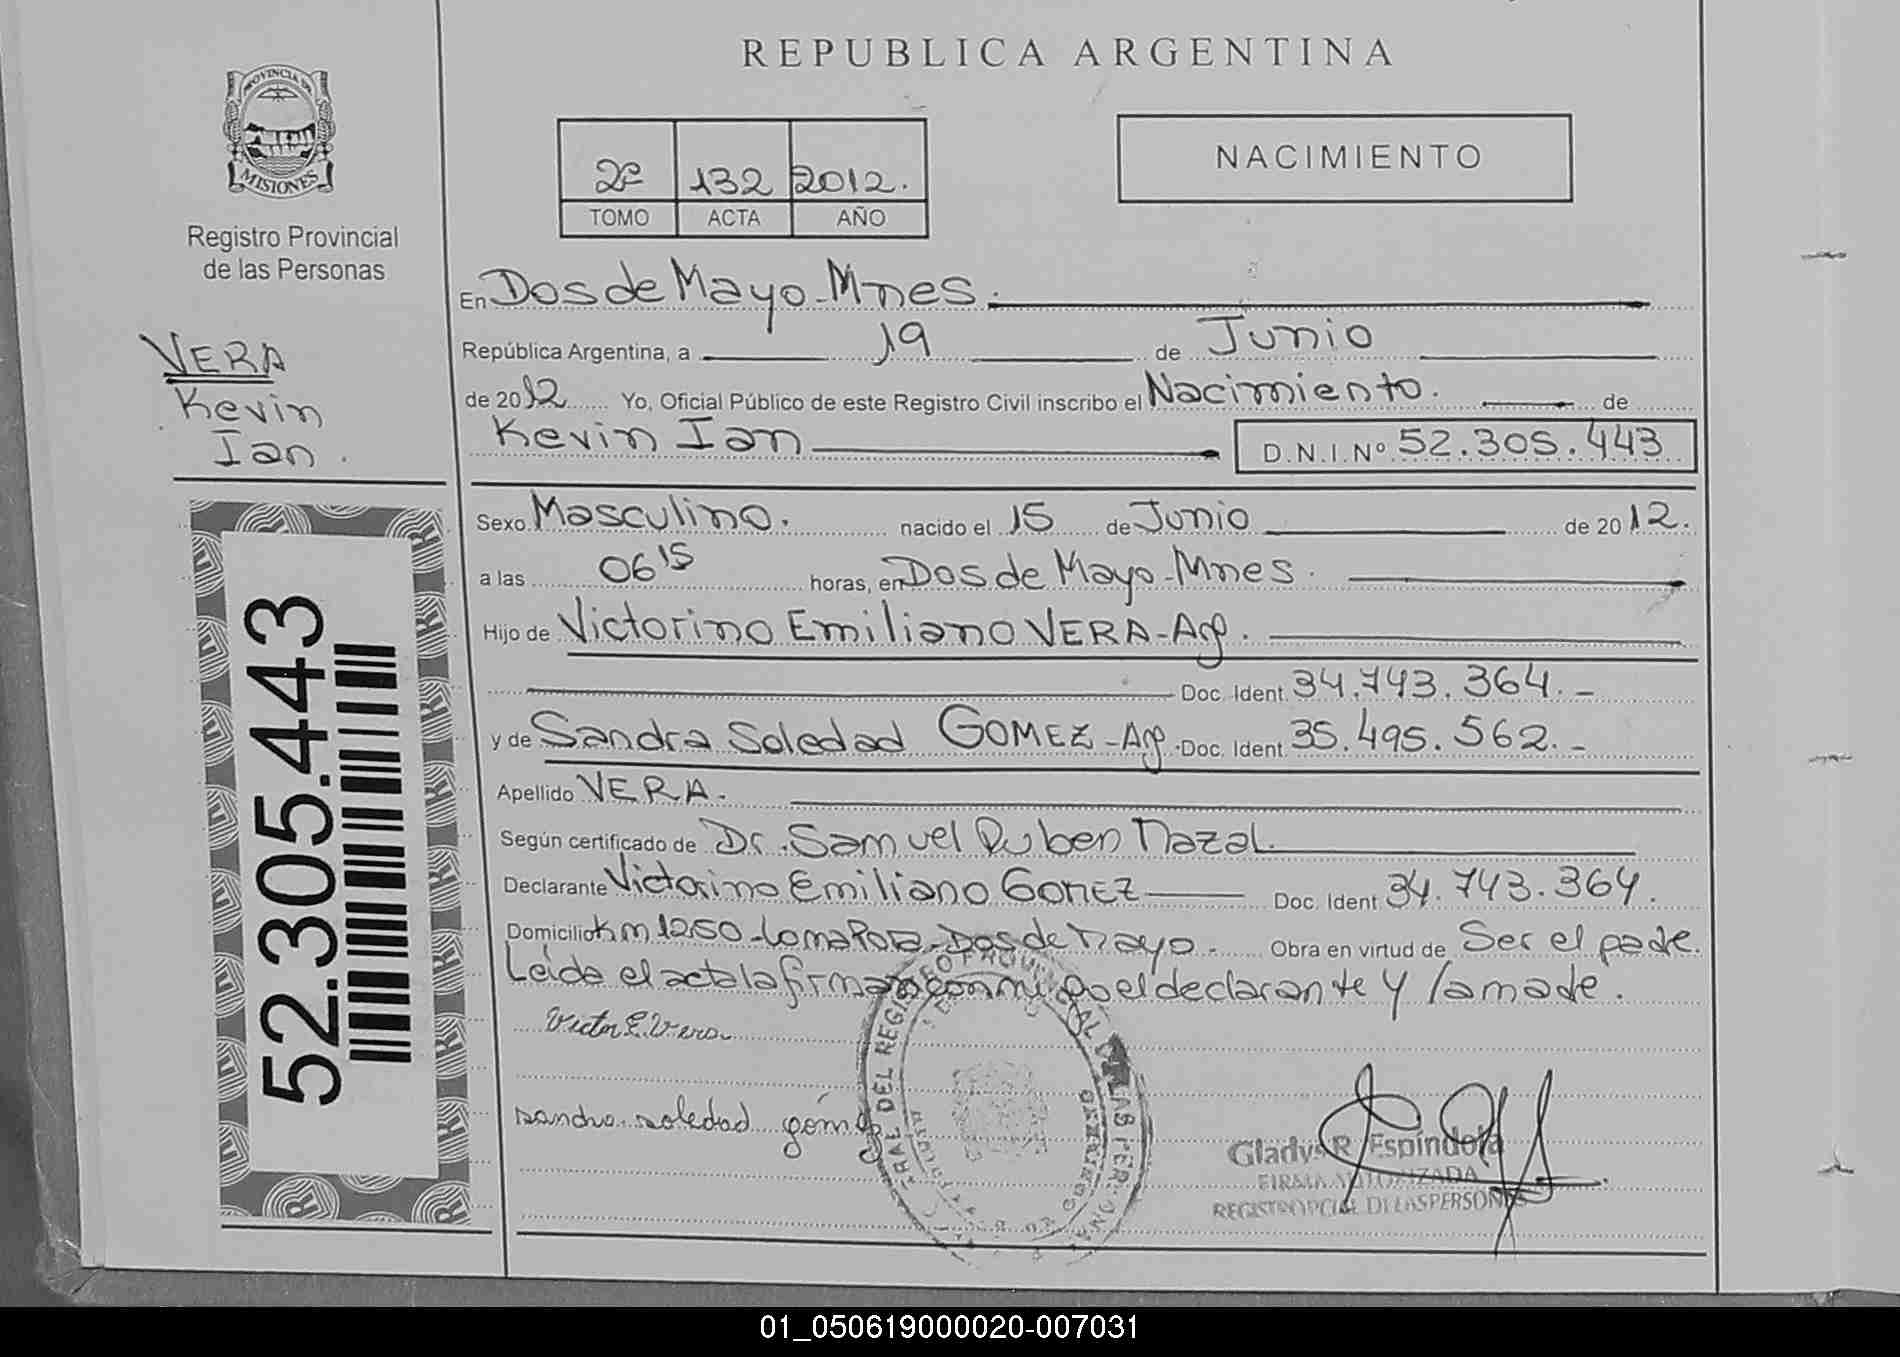 REPUBLICA ARGENTINA
PROVINCIA DE
MISIONES
Registro Provincial
de las Personas
2º 132 2012.
TOMO ACTA AÑO
NACIMIENTO
VERA
Kevin
Ian.
En Dos de Mayo-Mnes.
República Argentina, a 19 de Junio
de 2012 Yo, Oficial Público de este Registro Civil inscribo el Nacimiento. de
Kevin Ian D.N.I.Nº 52.305.443
Sexo Masculino. nacido el 15 de Junio de 2012.
a las 06 15 horas, en Dos de Mayo-Mnes.
Hijo de Victorino Emiliano VERA-Arg.
Doc. Ident. 34.743.364.-
y de Sandra Soledad GOMEZ-Arg. Doc. Ident. 35.495.562.-
Apellido VERA.
Según certificado de Dr. Samuel Ruben Nazal.
Declarante Victorino Emiliano GOMEZ Doc. Ident 34.743.364.
Domicilio Km 1250-Loma Dos de Mayo.- Obra en virtud de Ser el padre.
Leida el acta la firman conmigo el declarante y la madre.
Victor E. Vera
sandra soledad gómez
52.305.443
DEL REGISTRO PROVINCIAL DE LAS PERSONAS
Gladys R Espindola
FIRMA AUTORIZADA
REGISTRO PCIAL DE LAS PERSONAS
01_050619000020-007031